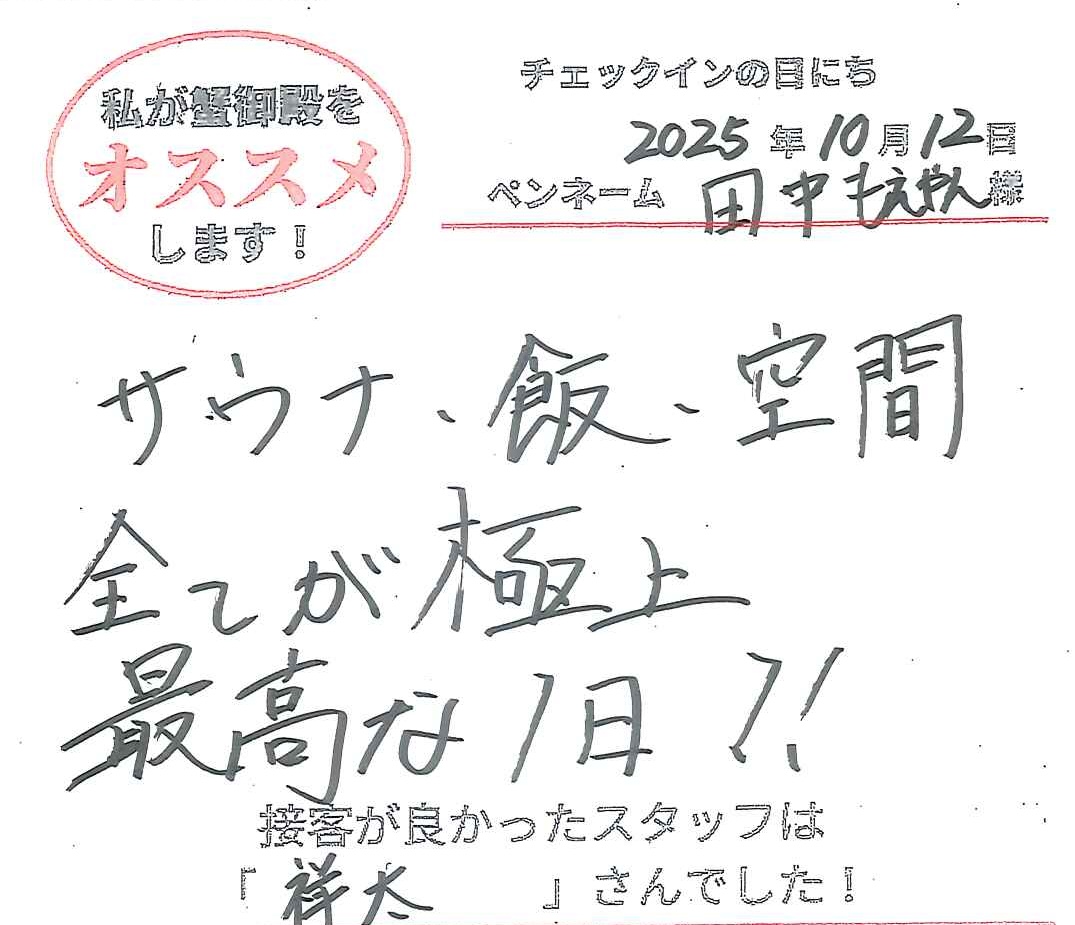 私が蟹御殿を
オススメ
します！
チェックインの日にち
2025年10月12日
ペンネーム 田中もえやん様
サウナ、飯、空間
全てが極上
最高な1日!!
接客が良かったスタッフは
「祥太」さんでした！